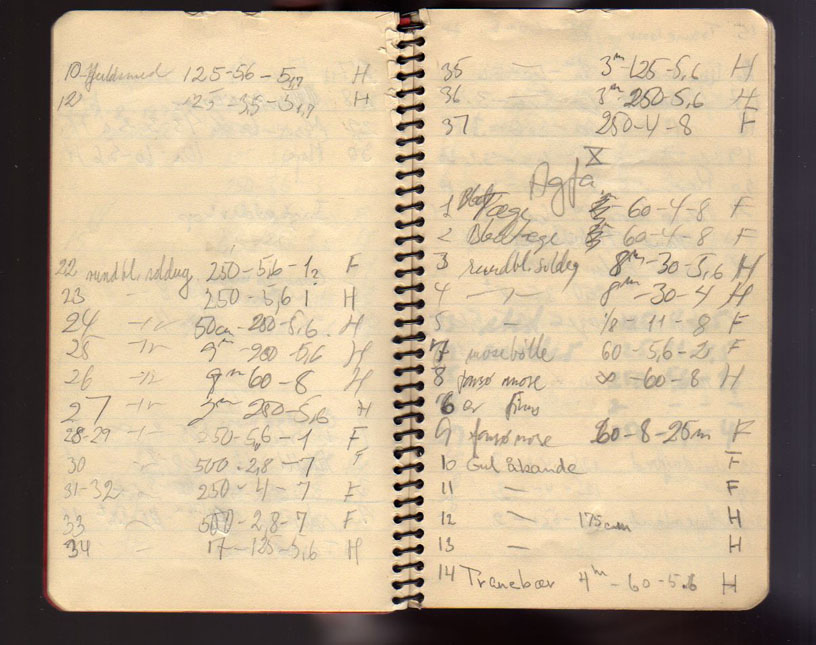 10 Guldsmed 125-5,6 - 5,7 H
12 125 - 5,7 H
22 rundbl. soldug 250-5,6-1 F
23 - 250-5,6 1 H
24 -"- 50cm-250-5,6 H
25 -"- 5,6 H
26 -"- 9m 60-8 H
27 -"- 3m 250-5,6 H
28-29 -"- 250-5,6-1 F
30 500-2,8-7 F
31-32 - 250-4-7 F
33 - 500-2,8-7 F
34 - 17-125-5,6 H
35 - 3m-125-5,6 H
36 - 3m 250-5,6 H
37 250-4-8 F
X
Agfa
1 Tæge 60-4-8 F
2 60-4-8 F
3 rundbl. soldug 8m-30-5,6 H
4 -"- 8m-30-4 H
5 - 1/8-11-8 F
7 mosebølle 60 5,6-2 F
8 mose ∞-60-8 H
6 er
9 mose 60-8-25m F
10 Gul F
11 - F
12 - 175cm H
13 - H
14 Tranebær 4m-60-5.6 H